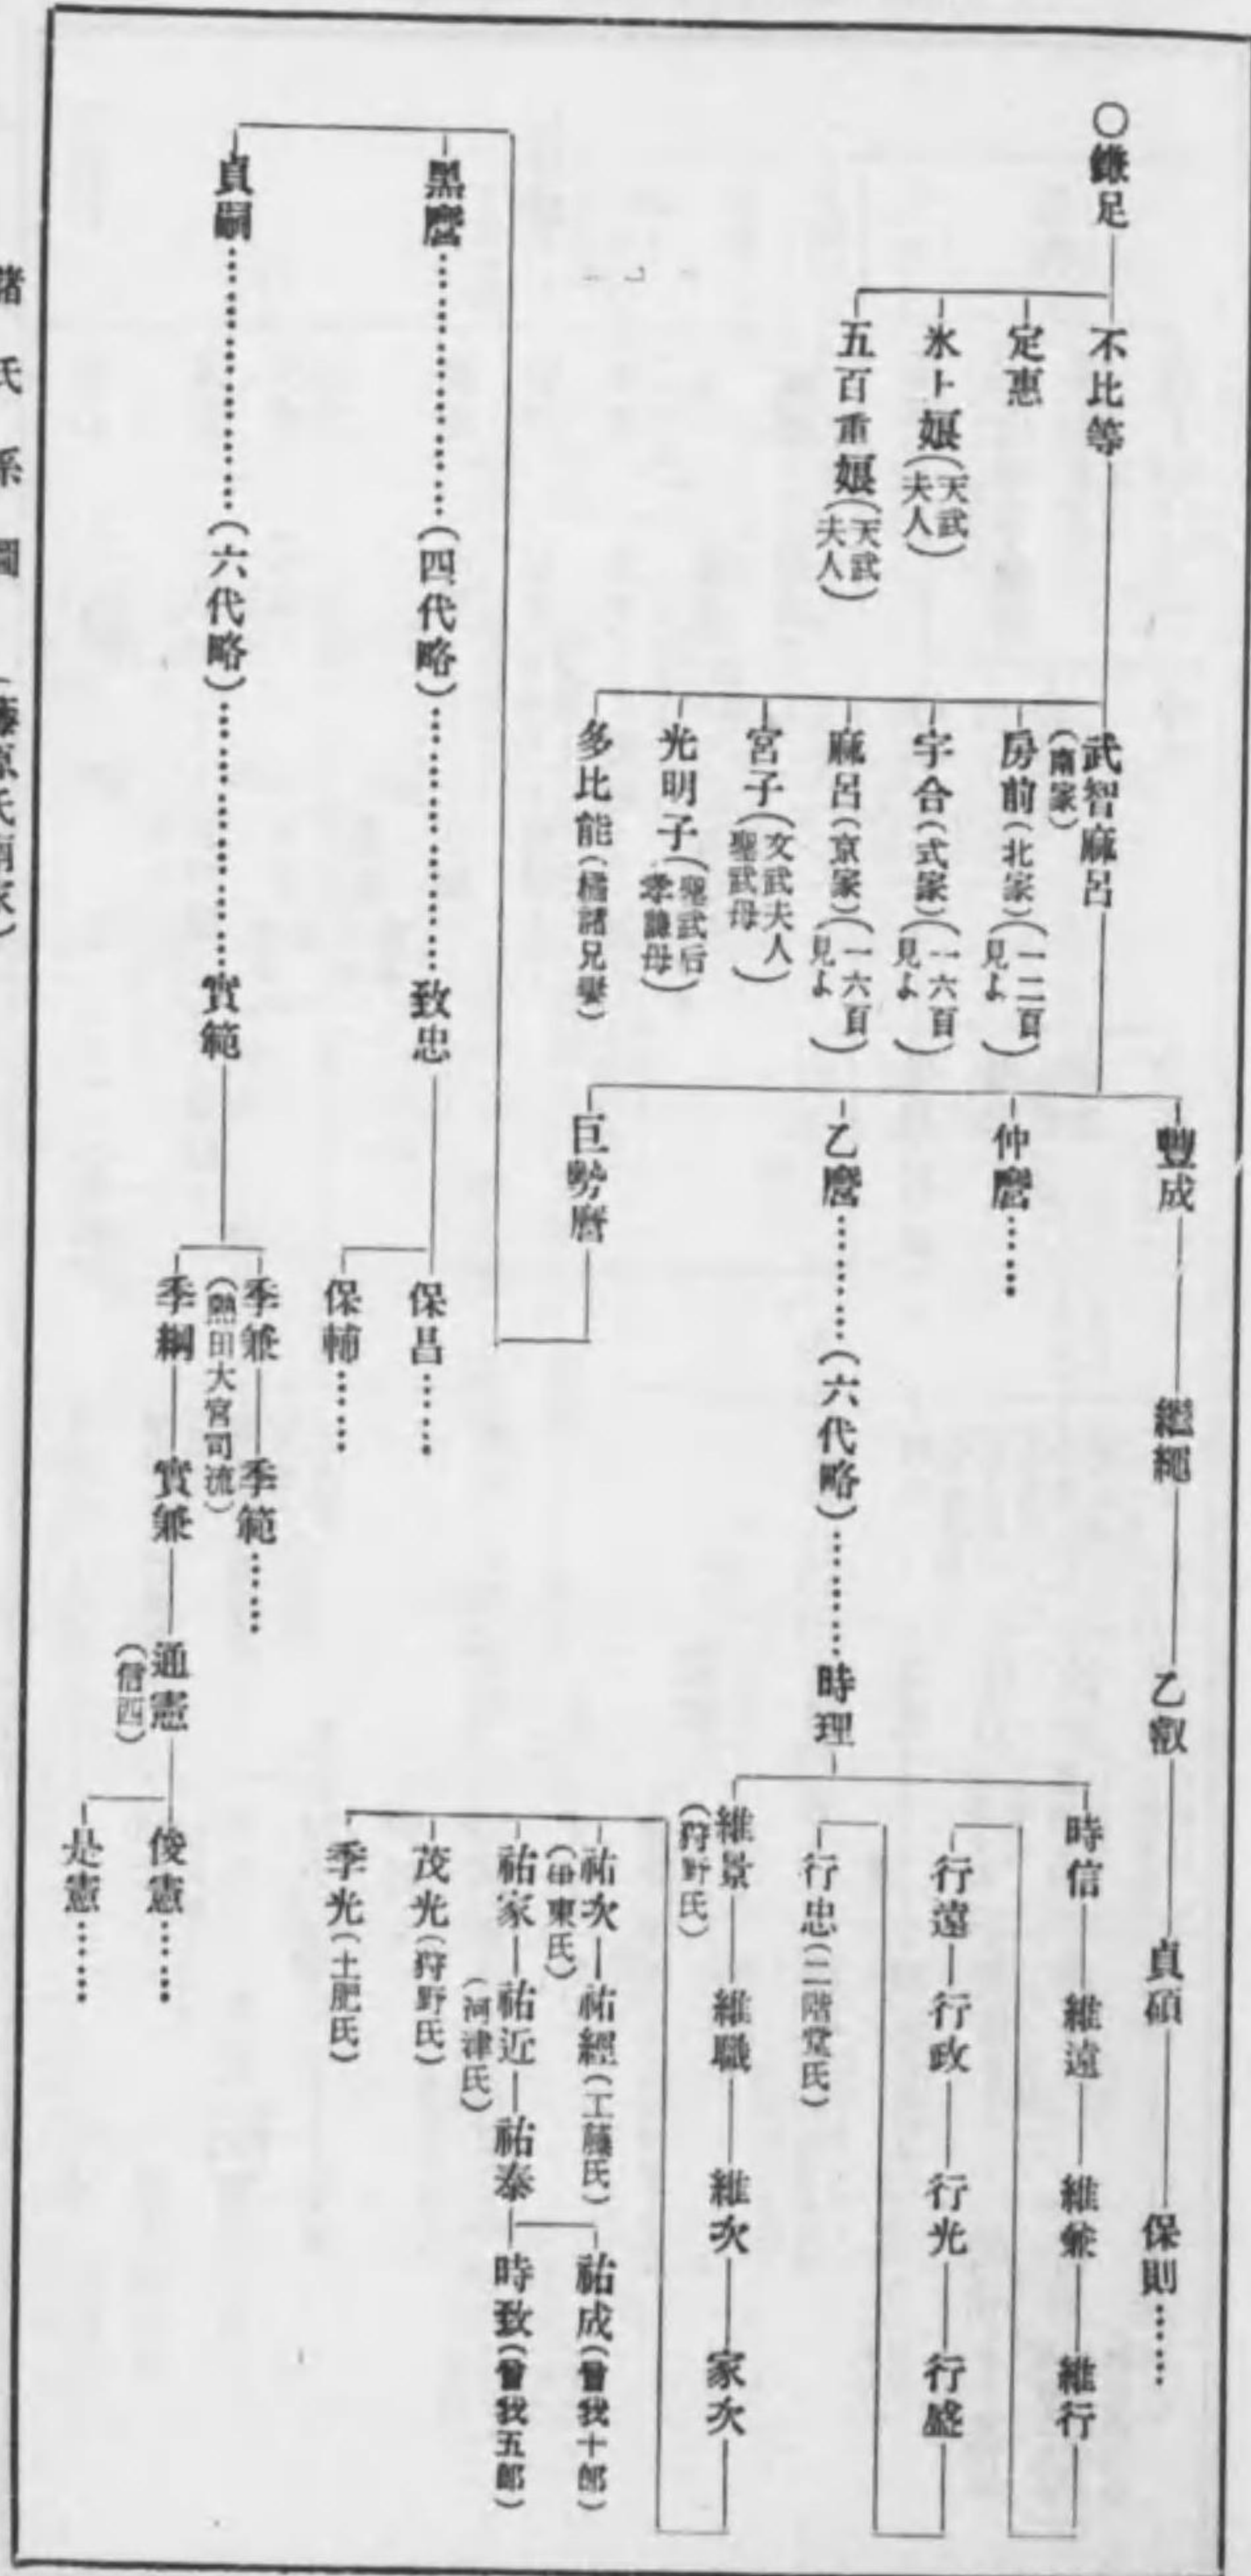 ○鎌足
不比等
定惠
氷上娘(天武夫人)
五百重娘(天武夫人)
武智麻呂
(南家)
房前(北家)(一二頁見よ)
宇合(式家)(一六頁見よ)
麻呂(京家)(一六頁見よ)
宮子(文武夫人 聖武母)
光明子(聖武后 孝謙母)
多比能(橘諸兄妻)
豐成―繼繩―乙叡―貞碩―保則……
仲麿……
乙麿………(六代略)………時理
巨勢麿
時信―維遠―維兼―維行
行遠―行政―行光―行盛
行忠(二階堂氏)
維景―維職―維次―家次
(狩野氏)
祐次―祐經(工藤氏)
(伊東氏)
祐家―祐近―祐泰
(河津氏)
祐成(曾我十郎)
時致(曾我五郎)
茂光(狩野氏)
季光(土肥氏)
黑麿………(四代略)………致忠
保昌……
保輔……
貞嗣………(六代略)………實範
季兼―季範……
(熱田大宮司流)
季綱―實兼―通憲
(信西)
俊憲……
是憲……
諸氏系圖 (藤原氏南家)